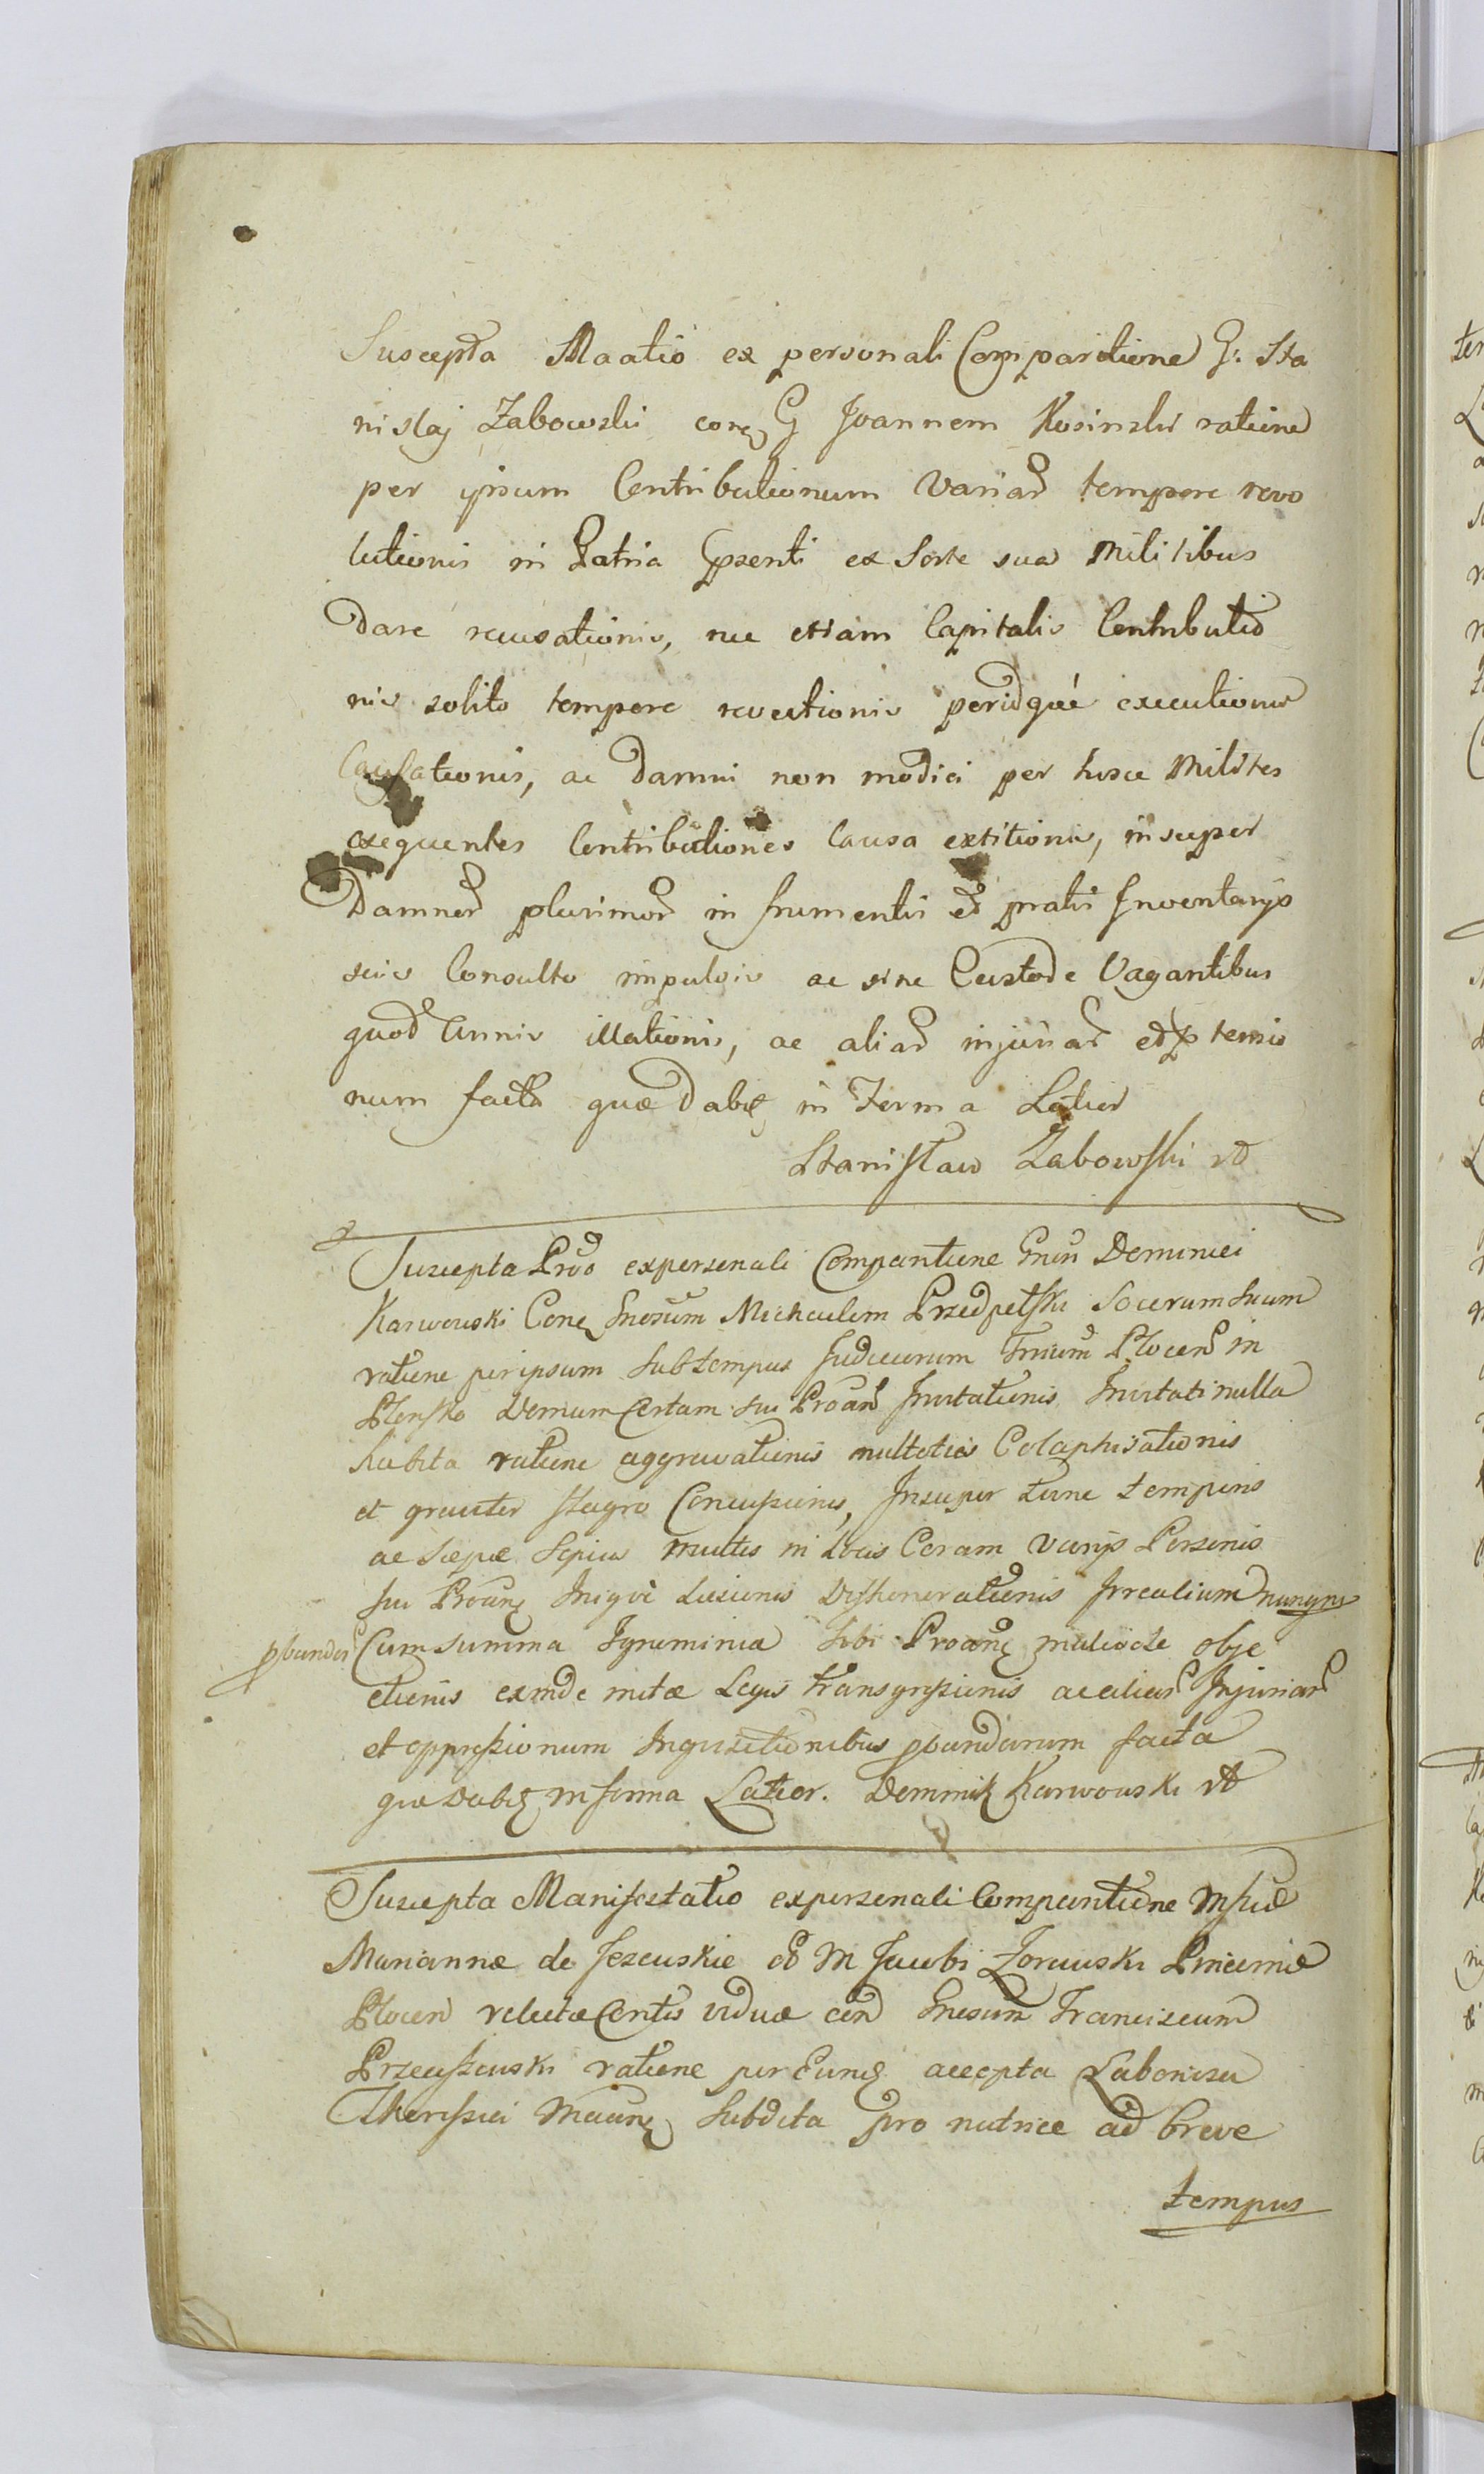 Suscepta Maatio ex personali Comparitione G: Sta
nislaj Zabowski con G Joannem Kosinski ratione
per ipsum Contributionum Variar tempore revo
lutionis in Patria pzenti ex Sorte sua Militibus
Dare recusationis, nec etiam Capitalis Contributio
nis solito tempore revectionis peridque executionis
Causationis, ac Damni non modici per hosce Milites
exequentes Contributiones Causa extitionis, insuper
Damnor plurimor in frumentis et pratis Inventarijs
suis Consulto impulsis ac sine Custode Vagantibus
quod Annis illationis, ac aliar injuriar et
num facta quæ Dabit in Forma Latior
Stanisław Zabowski
Suscepta Pro expersonali Comparitione Gnsi Dominici
Karwowski Con Gnosum Michaelem Przedpełski Socerum Suum
ratione peripsum Subtempus Judiciorum Trium Plocen in
Plonsko Domum Certam sui Proan Invitationis Invitati nulla
habita ratione aggravationis multoties Colaphisationis
et graviter flagro Concussionis, Insuper Tunc temporis
ac Sæpe Sepius multis in Locis Coram Varijs Personis
sui Proan Inique Læsionis Dishonorationis Irrealium nunqne
pbandor Cum summa Ignominia Sibi Proan maliciose obje
ctionis exinde initæ Legis transgressionis ac aliar Injuriar
et oppressionum Inquisitionibus pbandarum facta
quæ Dabit in forma Latior. Dominik Karwowski
Suscepta Manifestatio expersonali Comparitione Mficæ
Mariannæ de Jezewskie M Jacobi Zorawski Pincernæ
Plocen relictæ Contis viduæ con Gnosum Franciscum
Przeciszewski ratione per Eund accepta Laboriosa
Subdita pro nutrice ad breve
tempus